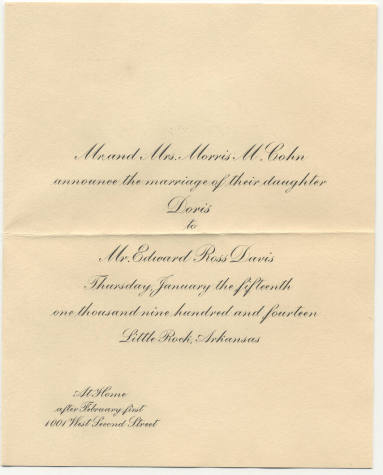 Mr. and Mrs. Morris M. Cohn
announce the marriage of their daughter
Doris
to
Mr. Edward Ross Davis
Thursday, January the fifteenth
one thousand nine hundred and fourteen
Little Rock, Arkansas
At Home
after February first
1001 West Second Street